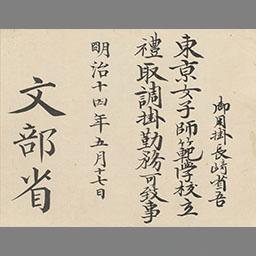 御用掛長崎省吾
東京女子師範學校立
禮取調掛勤務可致事
明治十四年五月十七日
文部省